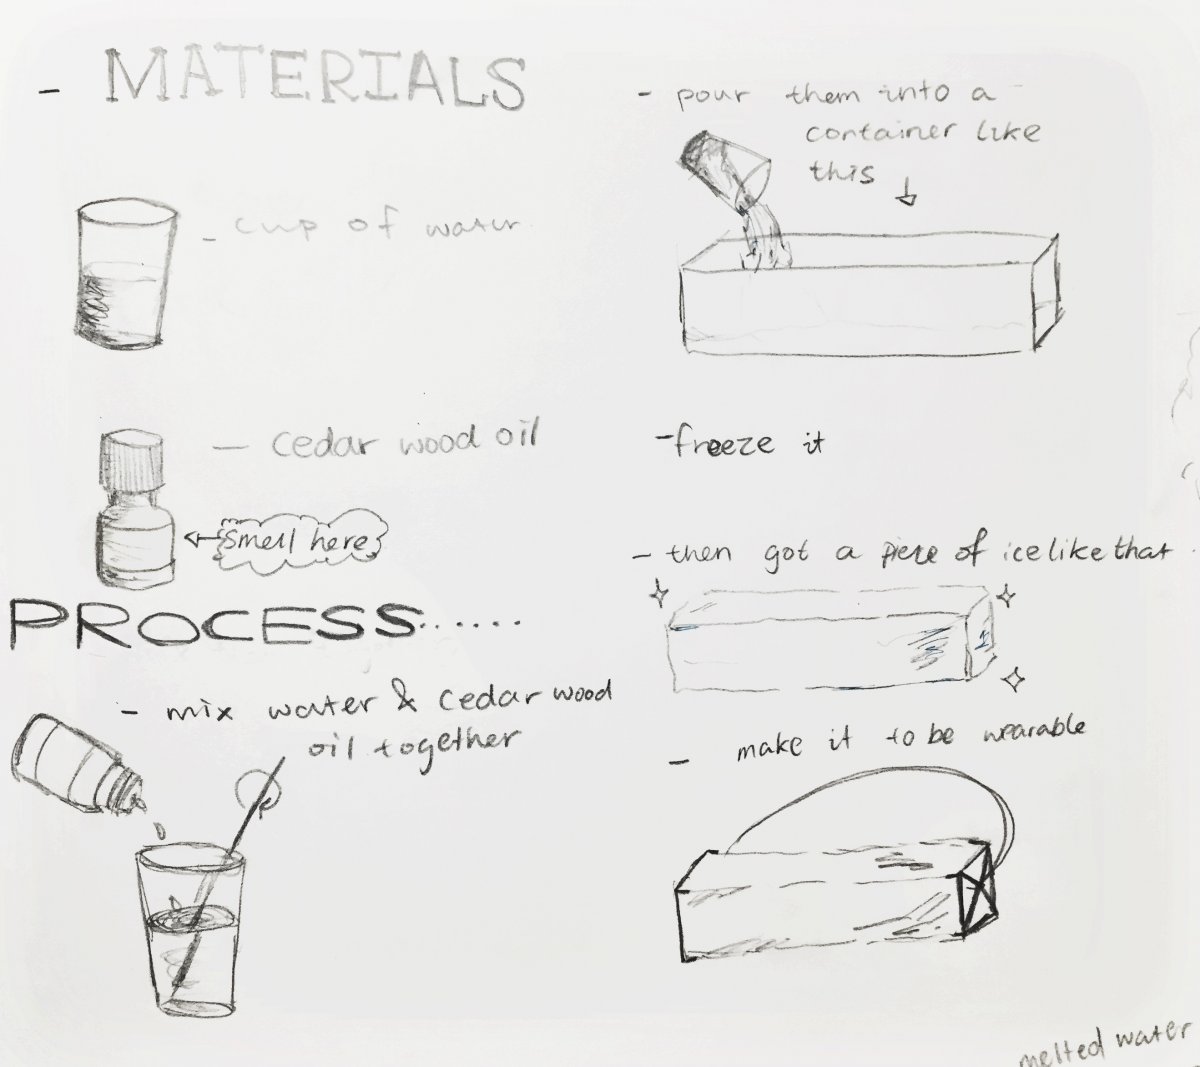 - MATERIALS
- cup of water
- cedar wood oil
smell here
PROCESS.......
- mix water & cedar wood
oil together
- pour them into a
container like
this
- freeze it
- then got a piece of ice like that
- make it to be wearable
melted water